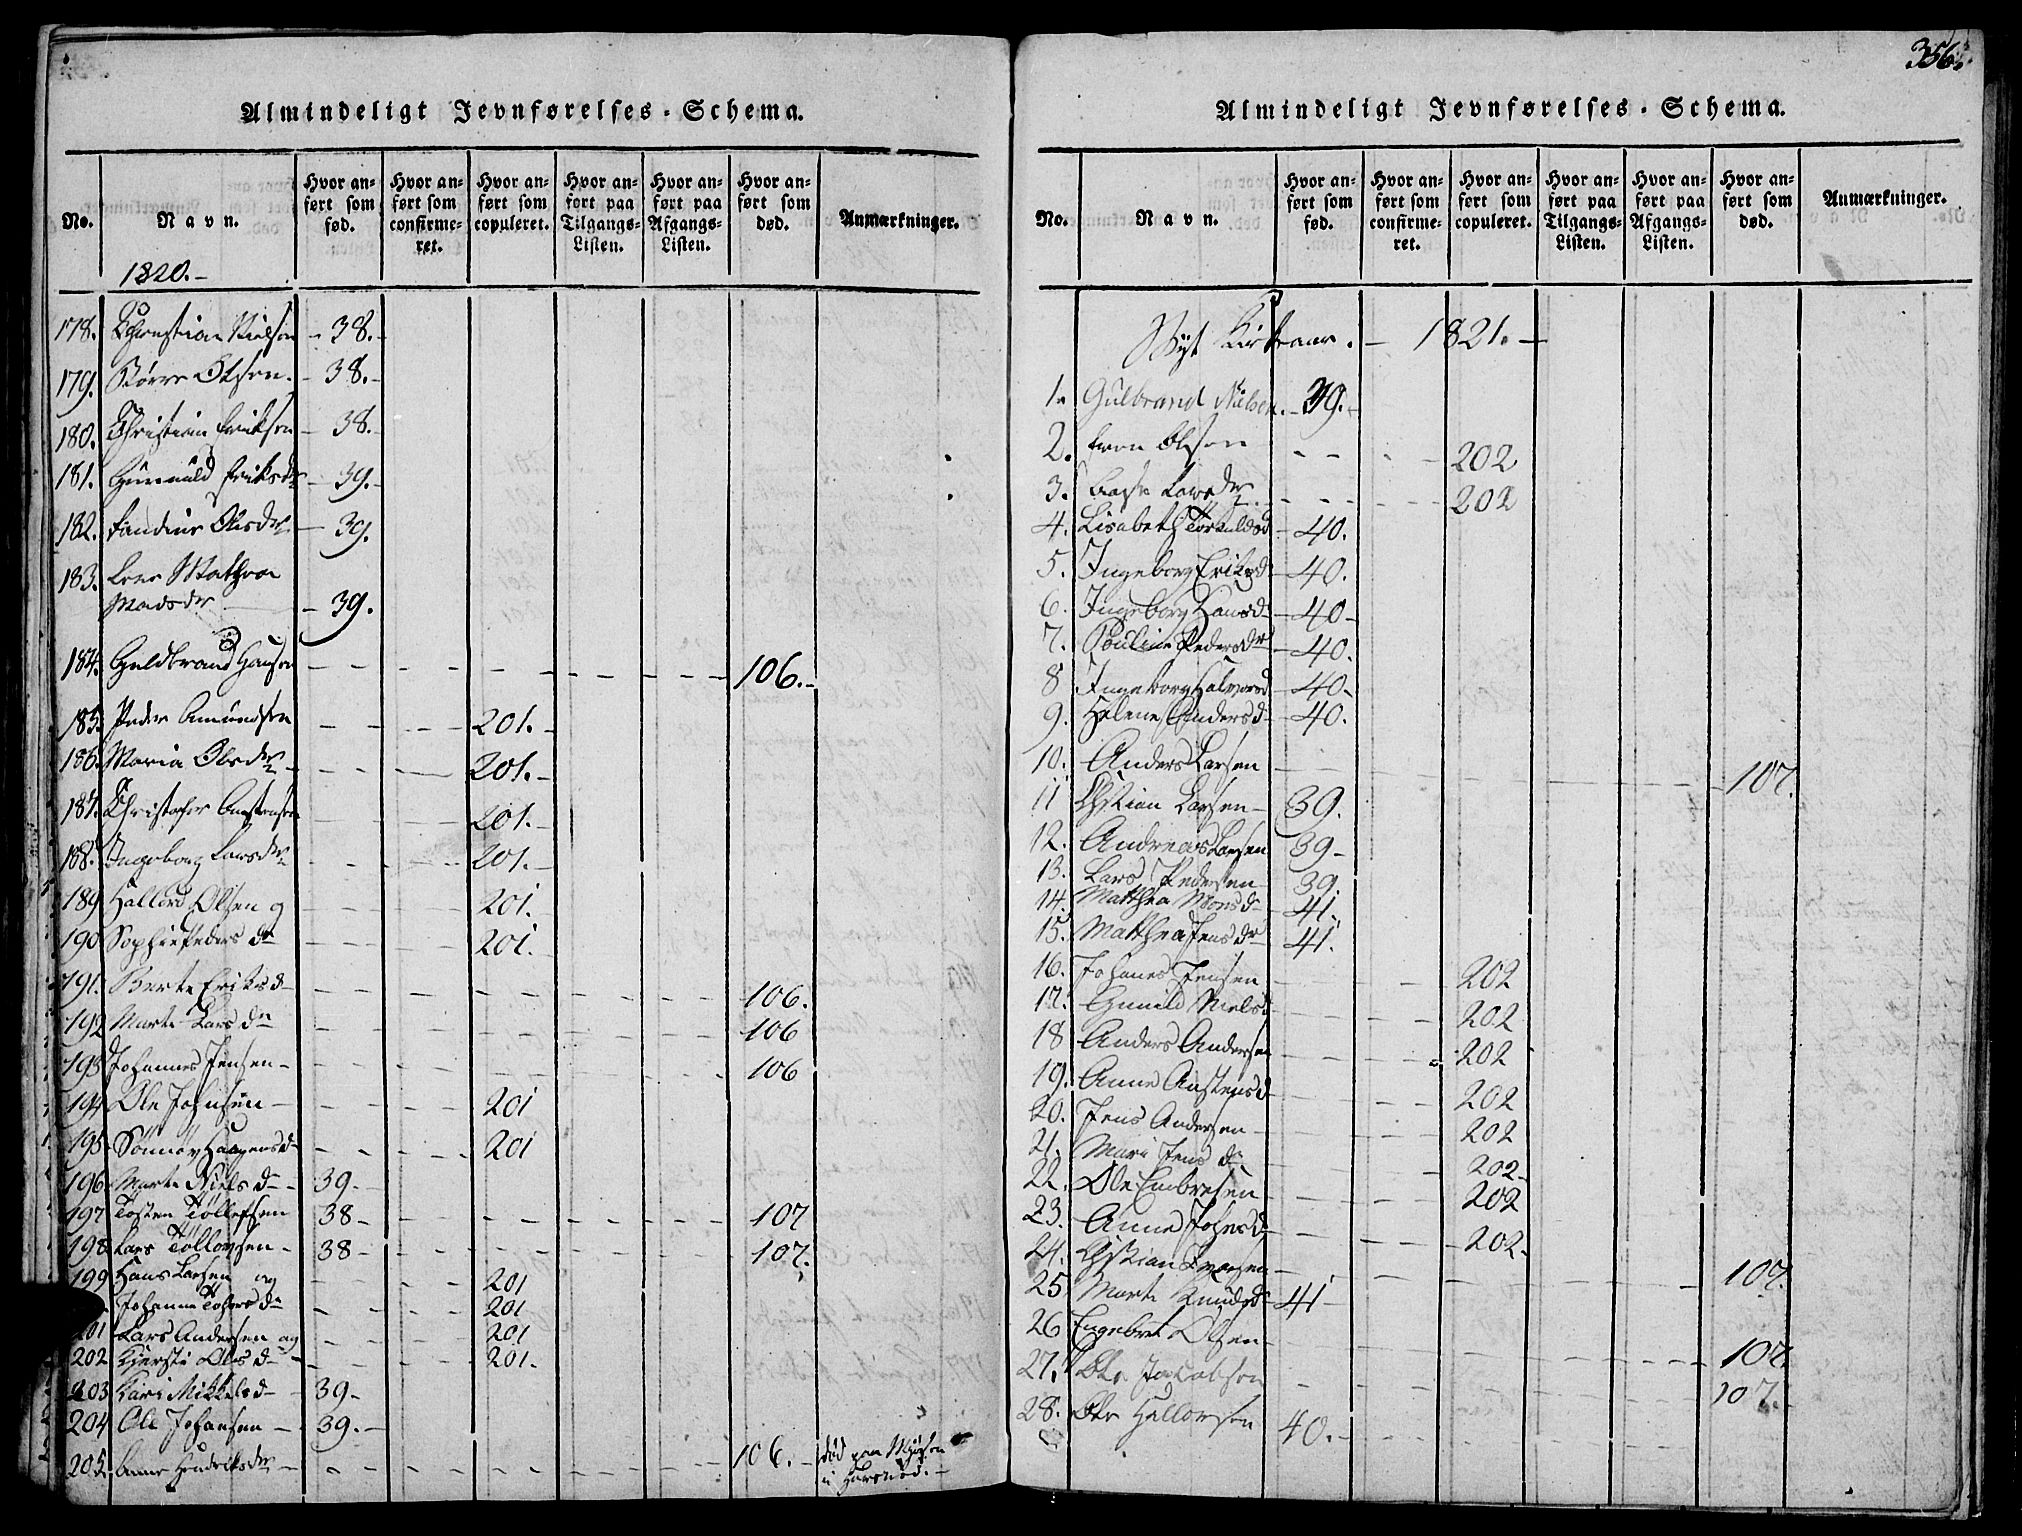 356.
Almindeligt Jevnførelses-Schema.
No.
Navn.
Hvor anført som fød.
Hvor anført som confirmeret.
Hvor anført som copuleret.
Hvor anført paa Tilgangs-Listen.
Hvor anført paa Afgangs-Listen.
Hvor anført som død.
Anmærkninger.
1820.-
178. Christian Nielsen - 38.-
179. Olsen. - 38.-
180. Christian Eriksen - 38.-
181. Gunnild Eriksdr - 39.-
182. Olesdr - 39.
183. Mathea
Madsdr - 39.
184. Guldbrand Hansen 106.-
185. Peder Amundsen 201.-
186. Maria Olesdr 201.-
187. Christofer 201.-
188. Ingeborg Larsdr 201.-
189 Hallord Olsen og 201.
190 Sophie Peders dr 201.
191. Berte Eriksd- 106.
192 Marte Lars dr 106
193 Johannes Jensen - 106
194 Ole Johnsen - 201
195. Sønnøv Haagensd- 201
196. Marte Niels d- 39.-
197 Tosten Tøllefsen 38- 107
198 Lars Tøllovsen - 38- 107.
199 Hans Larsen og 201
Johanne d- 201
201 Lars Andersen og 201
202 Kjersti Olsd- 201.
203 Kari Mikkelsd- 39.
204 Ole Johansen - 39.-
205. Anne Hendriksdr - 106.- død paa

Almindeligt Jevnførelses-Schema.
No.
Navn.
Hvor anført som fød.
Hvor anført som confirmeret.
Hvor anført som copuleret.
Hvor anført paa Tilgangs-Listen.
Hvor anført paa Afgangs-Listen.
Hvor anført som død.
Anmærkninger.
Nyt Kirkeaar. - 1821.-
1. Gulbrand Nielsen. - 39.-
2. Even Olsen 202
3. Larsdr 202
4. Lisabeth Torkildsd 40.
5. Ingeborg Eriksd- 40.
6. Ingeborg Hansd- 40-
7. Pouline Pedersdr 40.
8 Ingeborg Halvorsd 40-
9. Helene Andersd- 40.
10. Anders Larsen 107.
11 Chstian Larsen - 39.
12. Andreas Larsen 39-
13. Lars Pedersen 39.
14. Matthea Monsd- 41.
15. Matthea Jens dr 41.
16. Johanes Jensen 202
17. Gunild Nielsd 202
18 Anders Andersen 202
19. Anne Austensd- 202
20. Jens Andersen 202
21. Mari Jens d- 202-
22. Ole Embresen 202
23. Anne Johnsd- 202.
24. Chstian Larsen 107.
25 Marte Knudsd- 41-
26 Engebret Olsen 107.
27. Ole Jacobsen 107.-
28. Ole Hallorsen 40.-